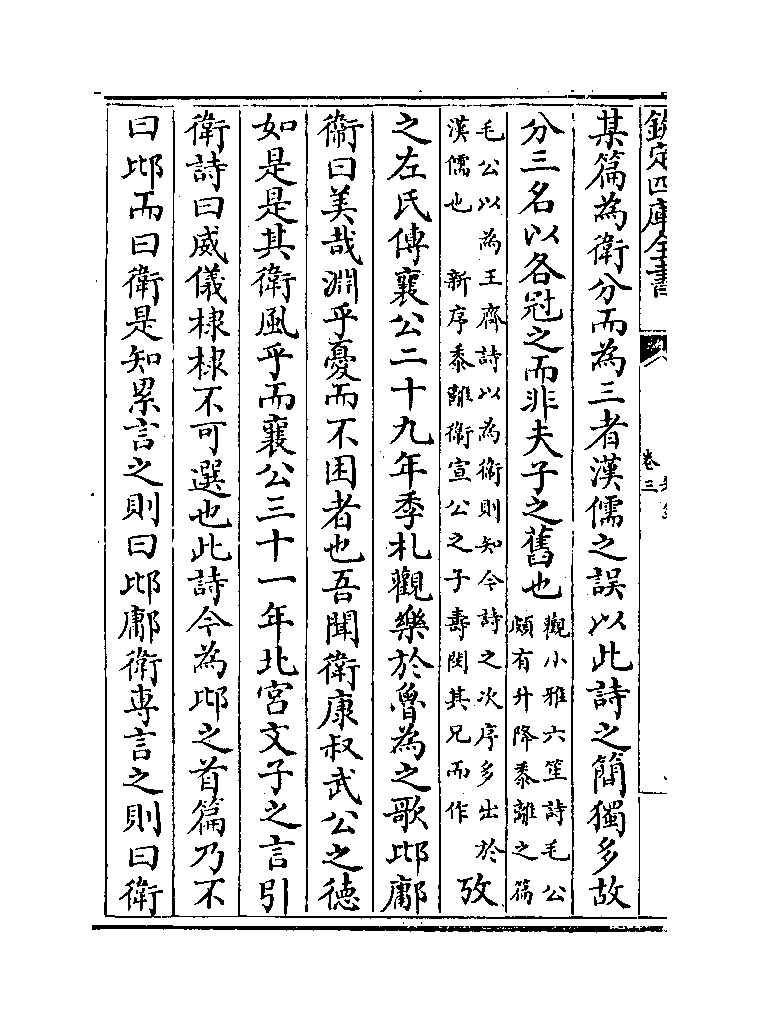 欽定四庫全書
卷三
某篇為衛分而為三者漢儒之誤以此詩之簡獨多故
分三名以各冠之而非夫子之舊也
觀小雅六笙詩毛公
頗有升降黍離之篇
毛公以為王齊詩以為衛則知今詩之次序多出於
漢儒也 新序黍離衛宣公之子壽閔其兄而作
攷
之左氏傳襄公二十九年季札觀樂於魯為之歌邶鄘
衛曰美哉淵乎憂而不困者也吾聞衛康叔武公之德
如是是其衛風乎而襄公三十一年北宮文子之言引
衛詩曰威儀棣棣不可選也此詩今為邶之首篇乃不
曰邶而曰衛是知累言之則曰邶鄘衛專言之則曰衛